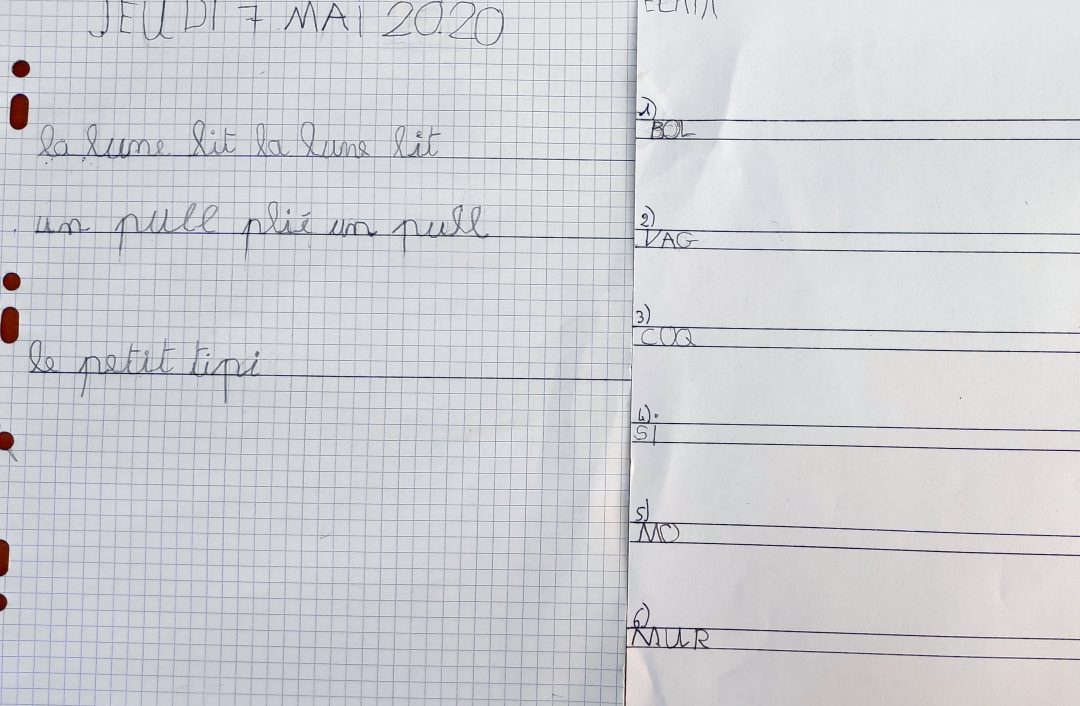 JEUDI 7 MAI 2020
la lune lit la lune lit
un pull plié un pull
le petit tipi
1)
BOL
2)
VAG
3)
COQ
4)
SI
5)
MO
6)
MUR